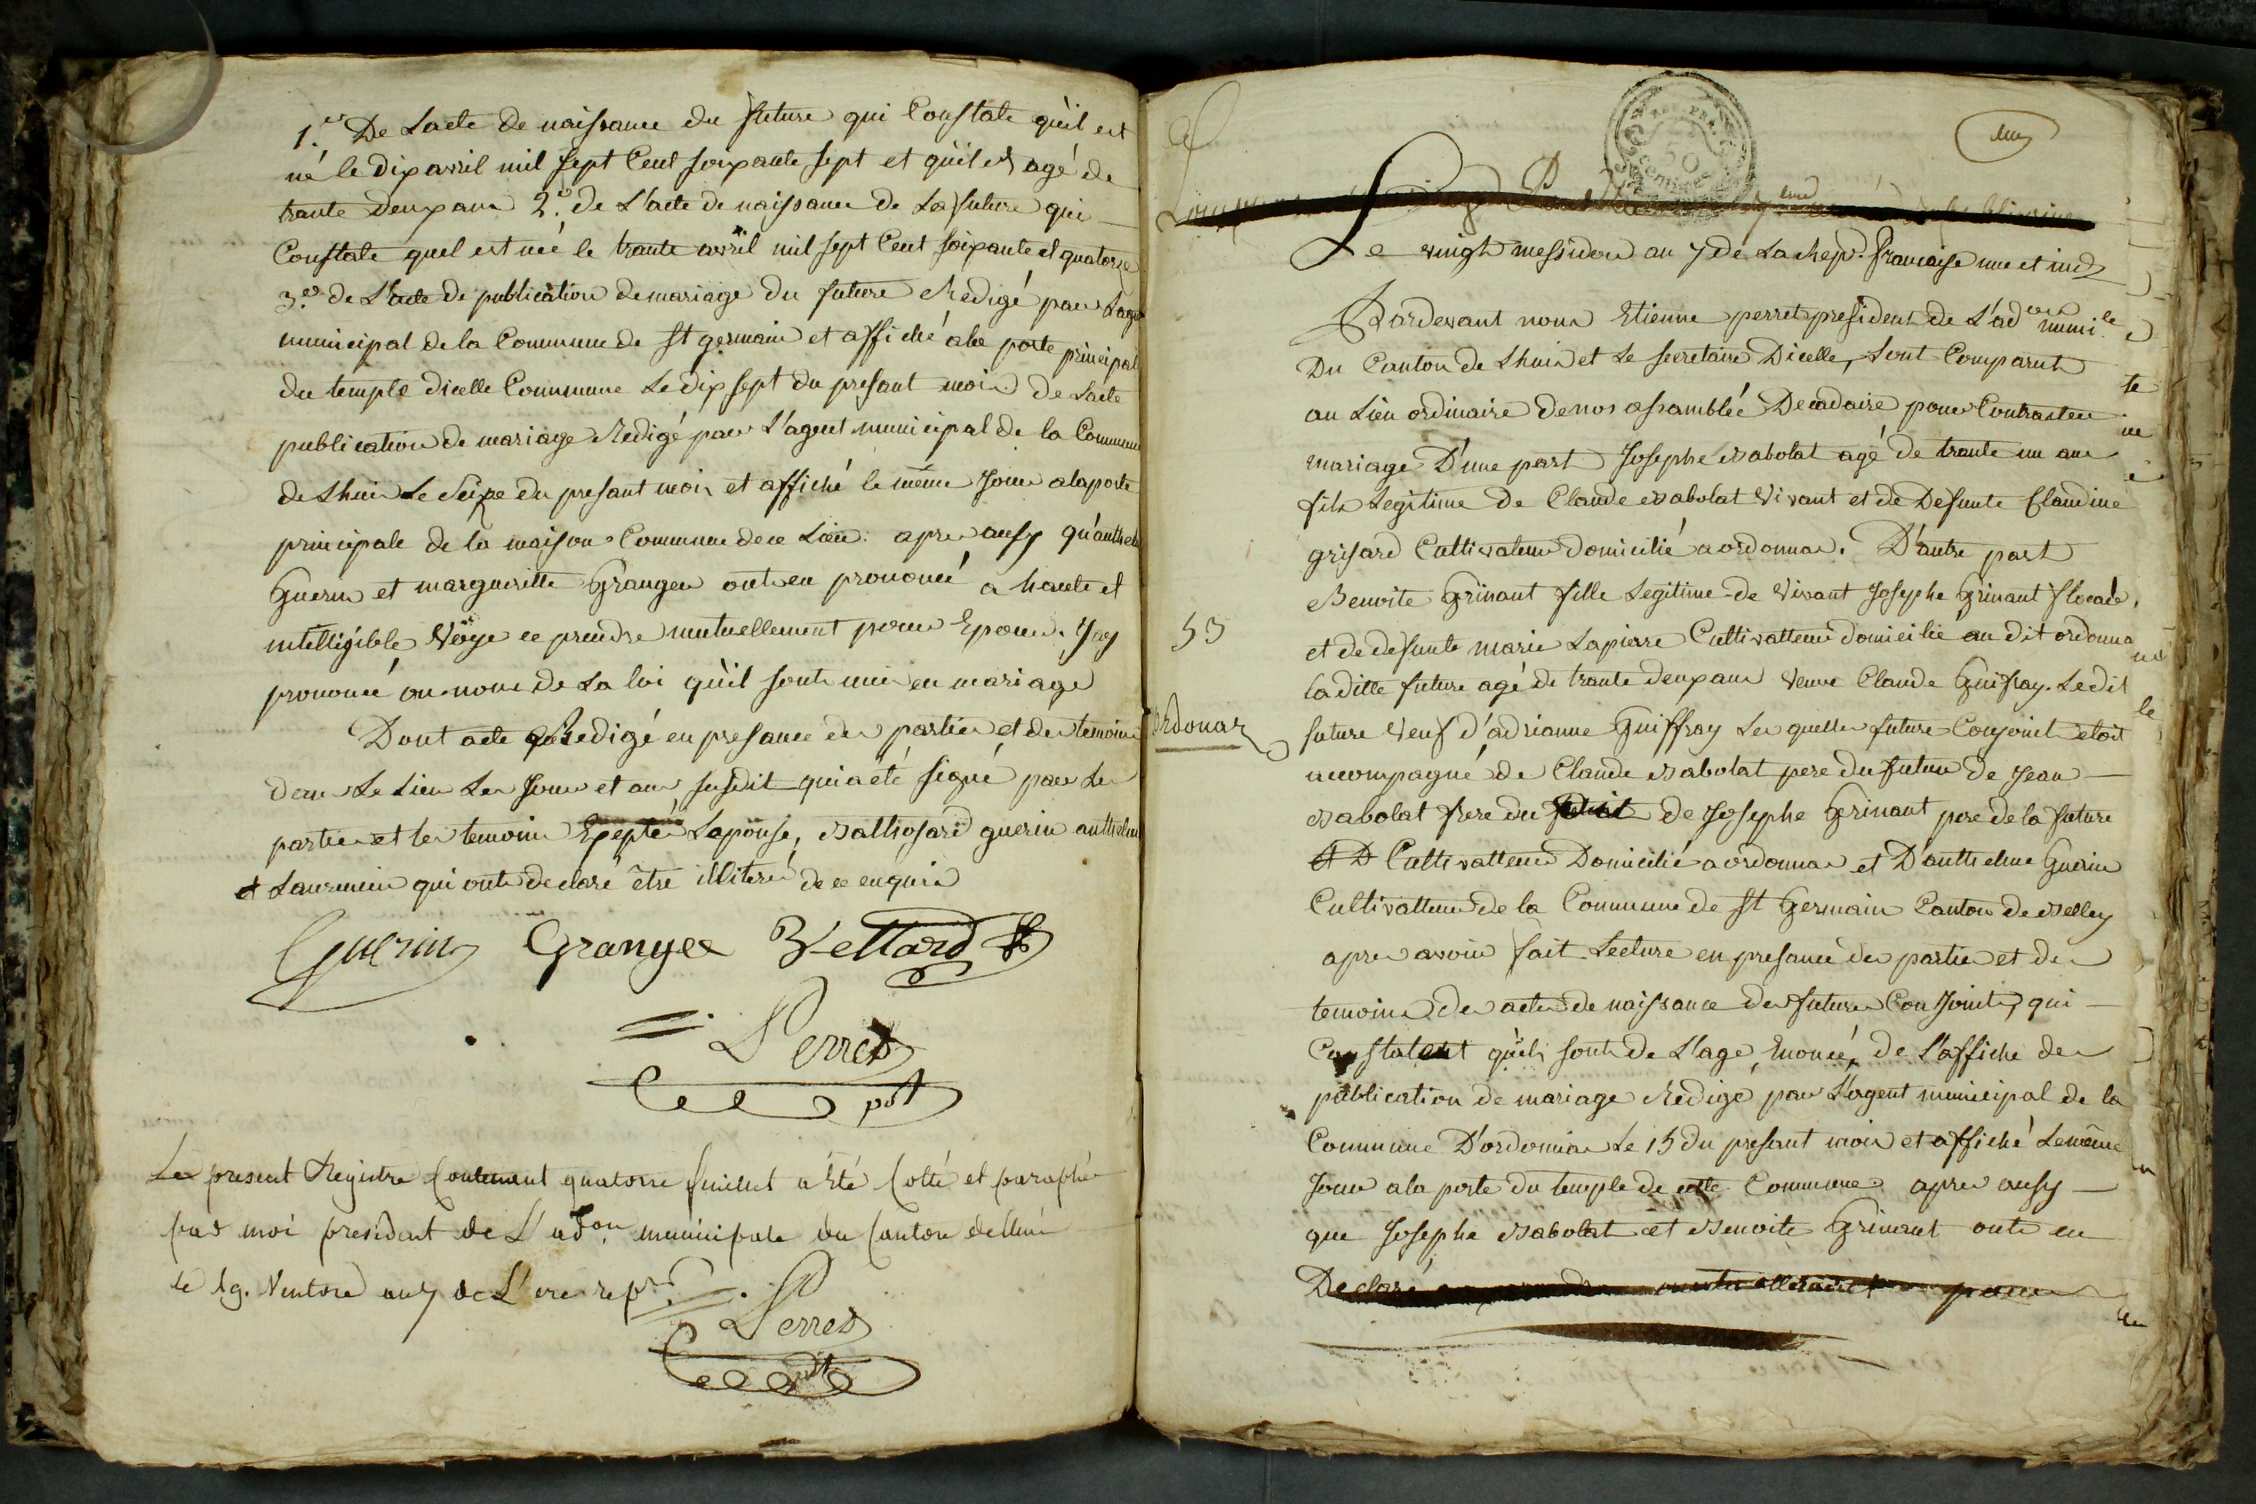 1.er De Lacte de naissance du future qui Constate qu'il est
né le dix avril mil sept Cent soixante sept et qu'il est agé de
trante deux ans 2.o de L'acte de naissance de La future qui
Constate quel est née le trante avril mil sept Cent soixante et quatorze
3.o de L'acte de publication de mariage du future Redigé par Lagent
municipal de la Commune de St germain et affiché a la porte principal
du temple dicelle Commune Le dix sept du presant mois de Lacte
publication de mariage Redigé par L'agent municipal de la Commune
de Lhuis Le Seize du presant mois et affiché le même Jour a la porte
principale de la maison Commune de ce Lieu: apres ausy qu'anthelme
Guerin et margueritte Granger ont eu prononcé a haute et
intelligible Voÿe ce prendre mutuellement pour Epoux. J'ay
prononcé au nom de La loi qu'il sont unis en mariage
Dont acte Redigé en presance des parties et des temoins
dans Le Lieu Les Jour et an susdit qui a été signé par Les
parties et les temoins Exepté Lapouse, guerin anthelme
et qui ont declaré être illiteré de ce enquis
Guerin Granger Vettard
Perret
pdt
Le present Registre Contenant quatorze feuillet a été Cotté et paraphé
par moi president de L'adon municipale du Canton de Lhuis
le 19. Ventose an 7 de L'ere repne
Perret
pdt
50
centimes
Le vingt messidor an 7 de La Rep. francaise une et ind
Pardevant nous Etienne perret president de L'adon munile
Du Canton de Lhuis et Le Secretaire Dicelle, sont Comparut
au Lieu ordinaire de nos assamblée Decadaire pour Contracter
mariage D'une part Josephe Babolat agé de trante un ans
fils Legitime de Claude Babolat Vivant et de Defunte Claudine
grisard Cultivateur domicilié a ordonnas. D'autre part
Benoite Grinant fille Legitime de Vivant Josephe Grinant
et de defunte marie Lapierre Cultivatteur domicilié au dit ordonna
la ditte future agé de trante deux ans Veuve Claude Guifray. Le dit
53
Ordonas
future Veuf d'adrianne Guiffray Les quelles future Conjoint etoit
accompagné de Claude Babolat pere du future de Jean
Babolat frere du de Josephe Grinant pere de la future
Cultivatteur Domicilié a ordonnas et D'anthelme Guerin
Cultivatteur de la Commune de St Germain Canton de Belley
apres avoir fait Lecture en presance des parties et des
temoins des actes de naissance des future Conjoints, qui
Constatent qu'els sont de L'age Enoncé, de L'affiche des
publication de mariage Redigé par L'agent municipal de la
Commune D'ordonnas Le 15 du presant mois et affiché Le même
Jour a la porte du temple de cette Commune apres ausy
que Josephe Babolat et Benoite Grinant ont eu
Declaré